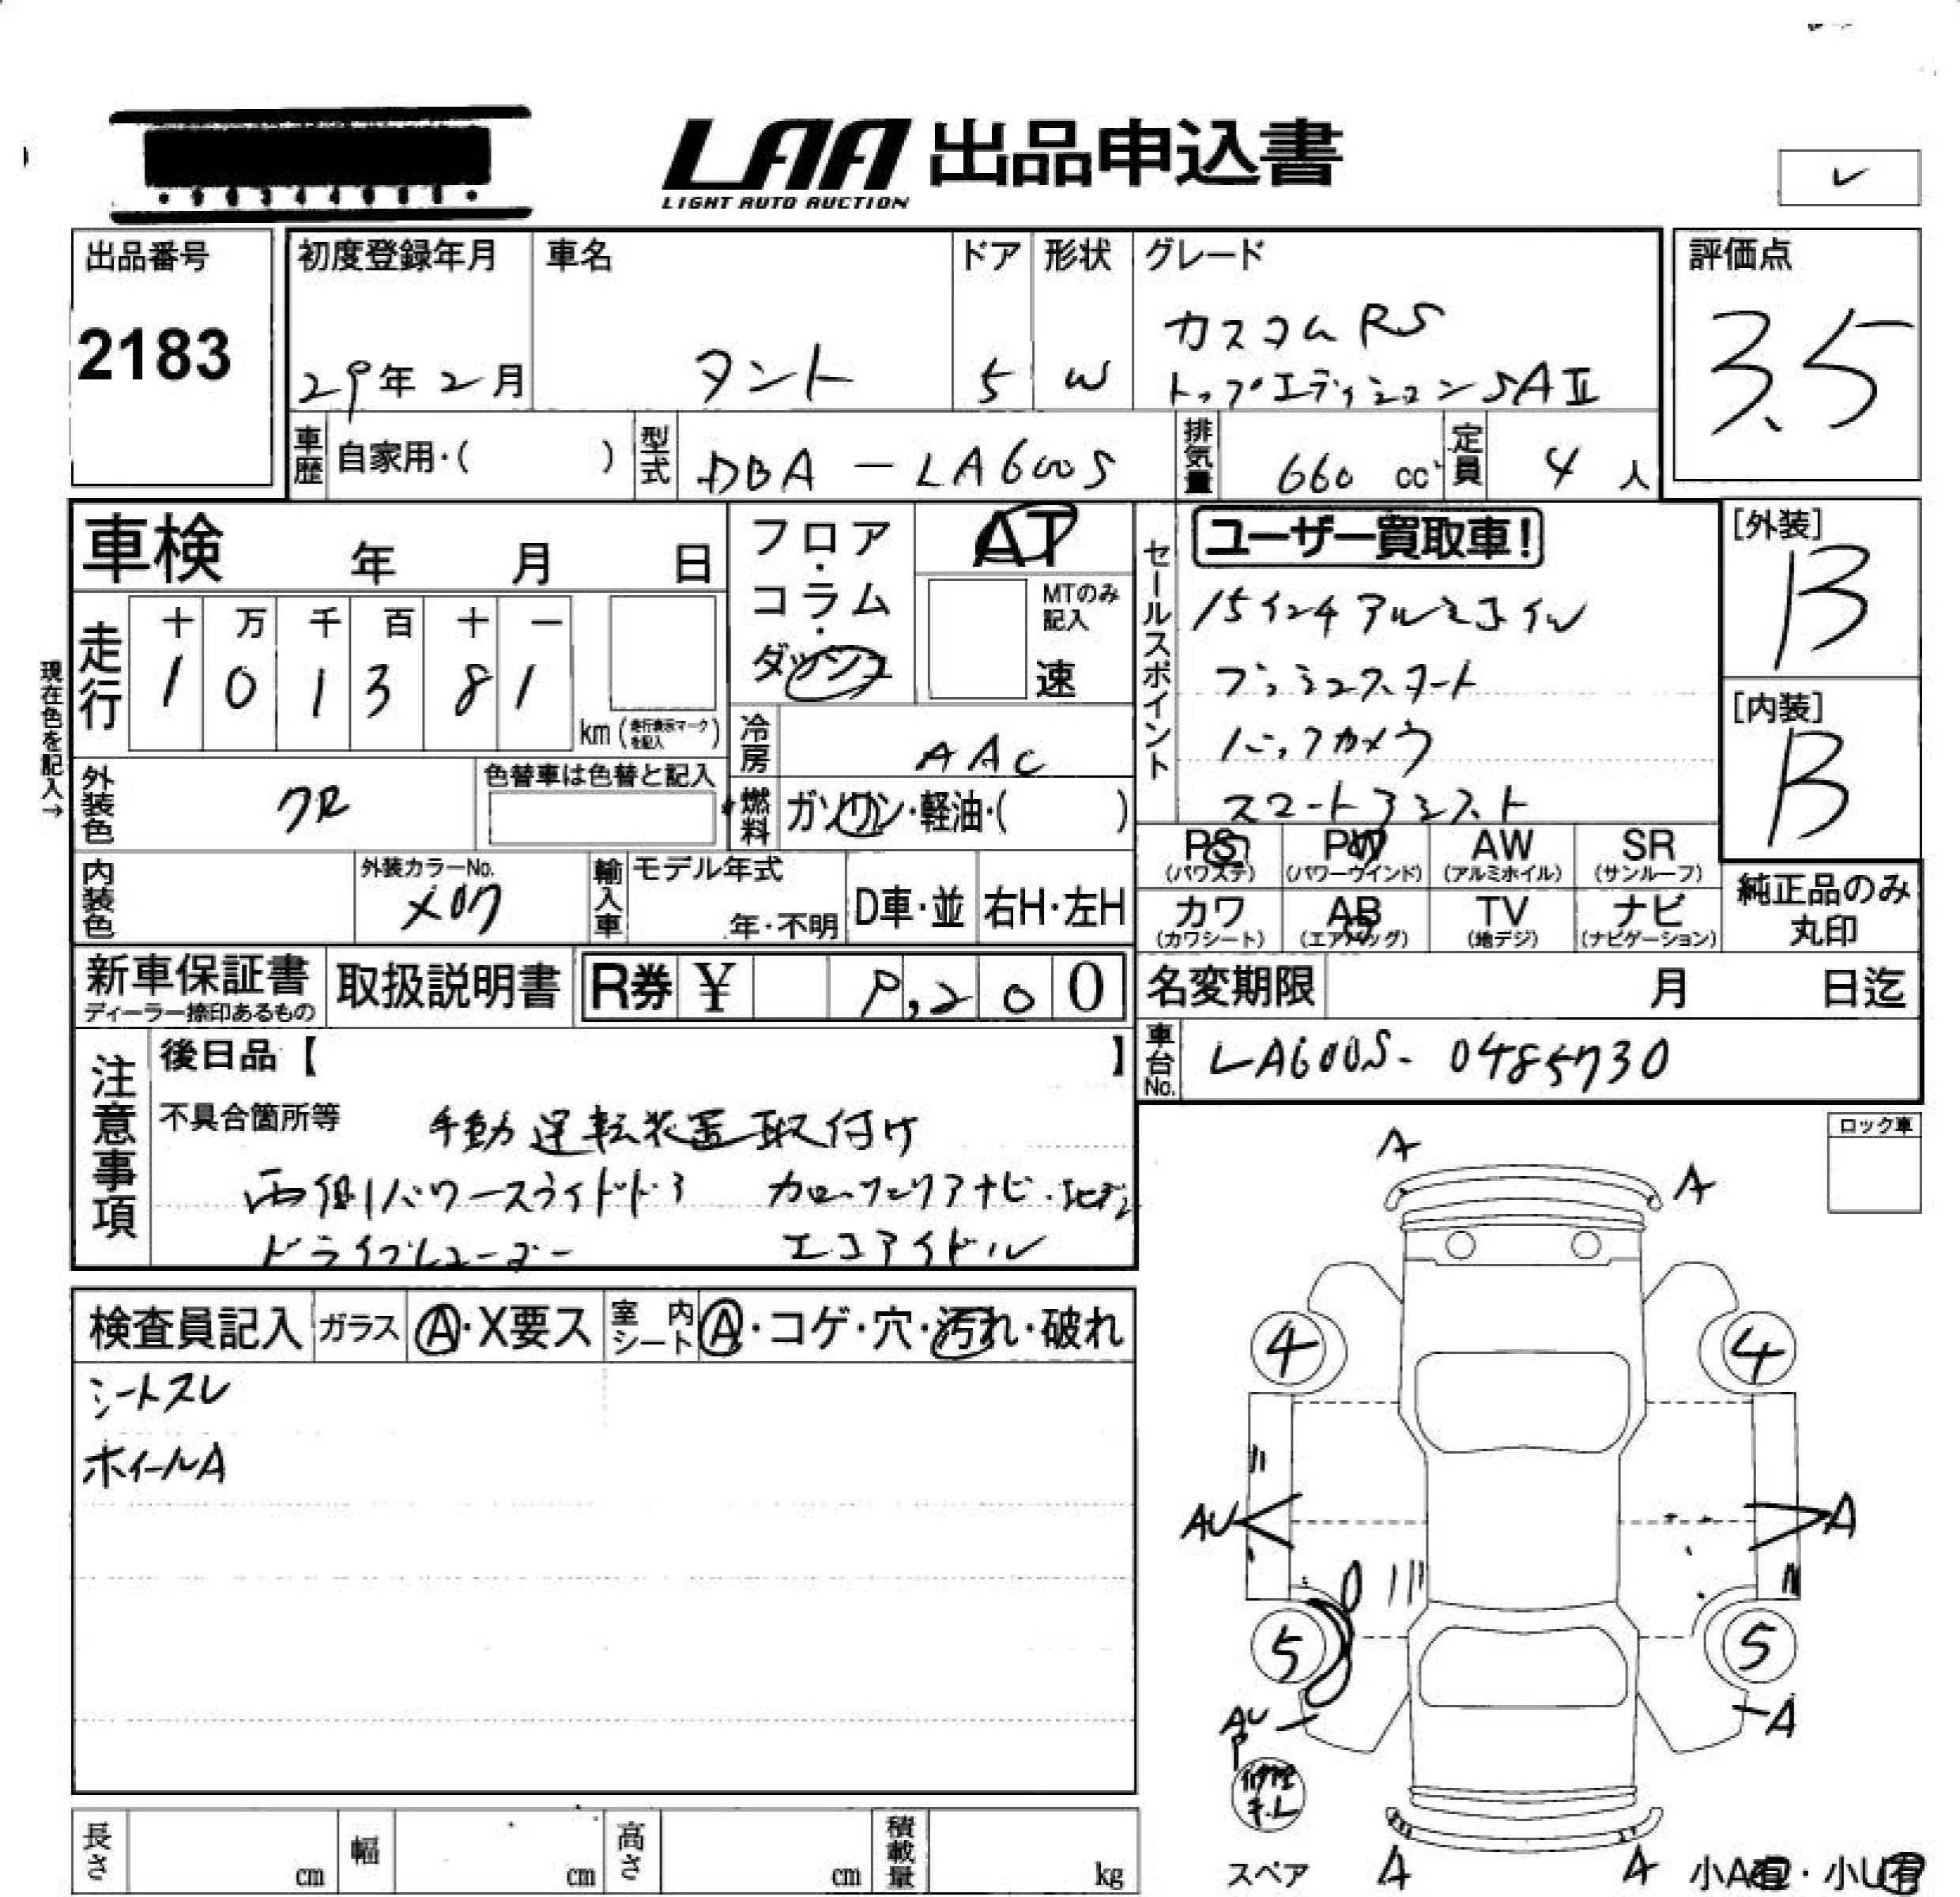 LAA 出品申込書
LIGHT AUTO AUCTION
出品番号
2183
初度登録年月
29年2月
車名
タント
ドア
5
形状
W
グレード
カスタムRS
トップエディションSAⅡ
評価点
3.5
車歴
自家用・( )
型式
DBA-LA600S
排気量
660 cc
定員
4人
車検 年 月 日
フロア・コラム・ダッシュ
AT
MTのみ記入
速
セールスポイント
ユーザー買取車!
15インチアルミホイル
プッシュスタート
バックカメラ
スマートアシスト
[外装]
B
[内装]
B
現在色を記入→
走行
十 万 千 百 十 一
1 0 1 3 8 1
km (走行表示マークを記入)
冷房
AAC
外装色
クロ
色替車は色替と記入
燃料
ガソリン・軽油・( )
PS (パワステ)
PW (パワーウインド)
AW (アルミホイル)
SR (サンルーフ)
カワ (カワシート)
AB (エアバッグ)
TV (地デジ)
ナビ (ナビゲーション)
純正品のみ丸印
内装色
外装カラーNo.
X07
輸入車
モデル年式
年・不明
D車・並
右H・左H
新車保証書
ディーラー捺印あるもの
取扱説明書
R券 ¥ 9,200
名変期限 月 日迄
車台No.
LA600S-0485730
注意事項
後日品【 】
不具合箇所等
手動運転装置取付け
両側パワースライドドア カロッツェリアナビ・地デジ
ドライブレコーダー エコアイドル
ロック車
検査員記入
ガラス
A・X要ス
室内シート
A・コゲ・穴・汚れ・破れ
シートスレ
ホイールA
A
A
4
4
AU
A
5
5
AU
P
A
修理キット
スペア
A
A
小A有・小U有
長さ cm
幅 cm
高さ cm
積載量 kg